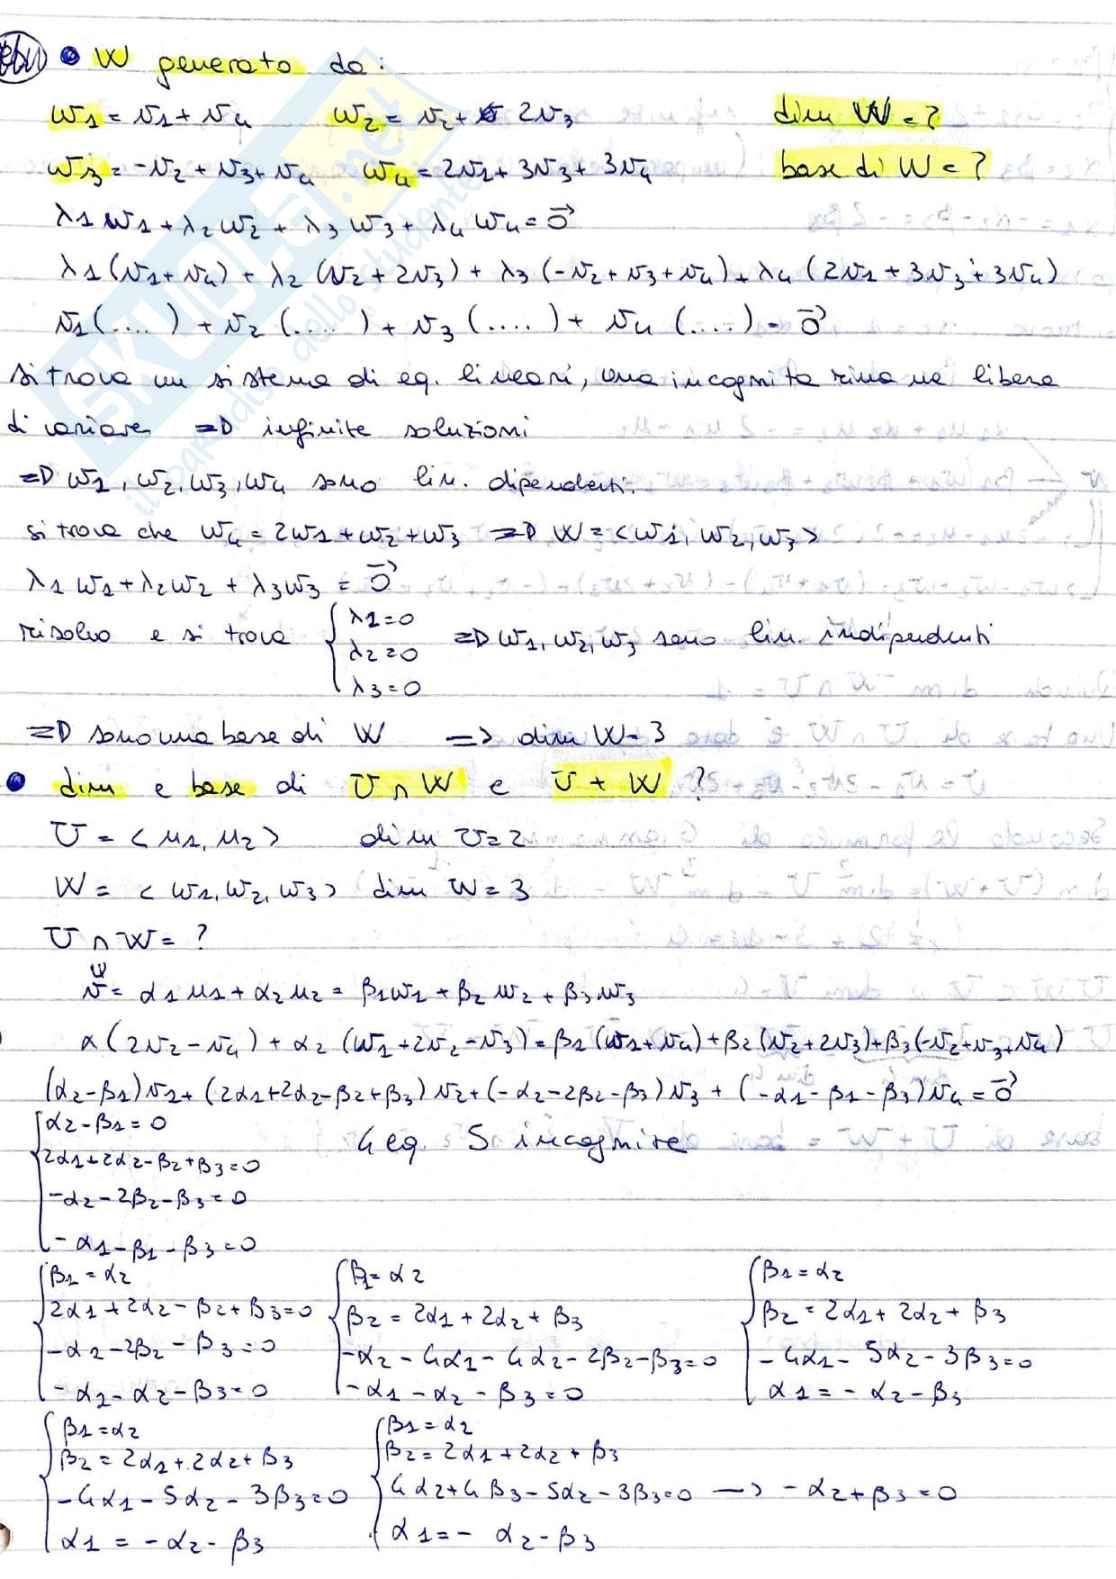 • W generato da:
w1 = v1 + v4   w2 = v2 + 2v3   dim W = ?
w3 = -v2 + v3 + v4   w4 = 2v1 + 3v3 + 3v4   base di W = ?
λ1 w1 + λ2 w2 + λ3 w3 + λ4 w4 = 0⃗
λ1 (v1 + v4) + λ2 (v2 + 2v3) + λ3 (-v2 + v3 + v4) + λ4 (2v1 + 3v3 + 3v4)
v1 (....) + v2 (....) + v3 (....) + v4 (....) = 0⃗
si trova un sistema di eq. lineari, una incognita rimane libera
di variare => infinite soluzioni
=> w1, w2, w3, w4 sono lin. dipendenti.
si trova che w4 = 2w1 + w2 + w3 => W = <w1, w2, w3>
λ1 w1 + λ2 w2 + λ3 w3 = 0⃗
risolvo e si trova { λ1 = 0 => w1, w2, w3 sono lin. indipendenti
λ2 = 0
λ3 = 0
=> sono una base di W => dim W = 3
• dim e base di U ∩ W e U + W ?
U = <u1, u2>   dim U = 2
W = <w1, w2, w3>   dim W = 3
U ∩ W = ?
v = α1 u1 + α2 u2 = β1 w1 + β2 w2 + β3 w3
α (2v2 - v4) + α2 (v1 + 2v2 - v3) = β1 (v1 + v4) + β2 (v2 + 2v3) + β3 (-v2 + v3 + v4)
(α2 - β1) v1 + (2α1 + 2α2 - β2 + β3) v2 + (-α2 - 2β2 - β3) v3 + (-α1 - β1 - β3) v4 = 0⃗
{ α2 - β1 = 0
2α1 + 2α2 - β2 + β3 = 0   4 eq. 5 incognite
-α2 - 2β2 - β3 = 0
-α1 - β1 - β3 = 0
{ β1 = α2   { β1 = α2   { β1 = α2
2α1 + 2α2 - β2 + β3 = 0   β2 = 2α1 + 2α2 + β3   β2 = 2α1 + 2α2 + β3
-α2 - 2β2 - β3 = 0   -α2 - 4α1 - 4α2 - 2β2 - β3 = 0   -4α1 - 5α2 - 3β3 = 0
-α1 - α2 - β3 = 0   -α1 - α2 - β3 = 0   α1 = -α2 - β3
{ β1 = α2   { β1 = α2
β2 = 2α1 + 2α2 + β3   β2 = 2α1 + 2α2 + β3
-4α1 - 5α2 - 3β3 = 0   4α2 + 4β3 - 5α2 - 3β3 = 0 -> -α2 + β3 = 0
α1 = -α2 - β3   α1 = -α2 - β3
SKUOLA.net